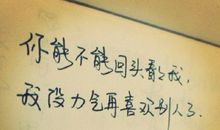 你能不能回头看看我,
我没力气再喜欢别人了.